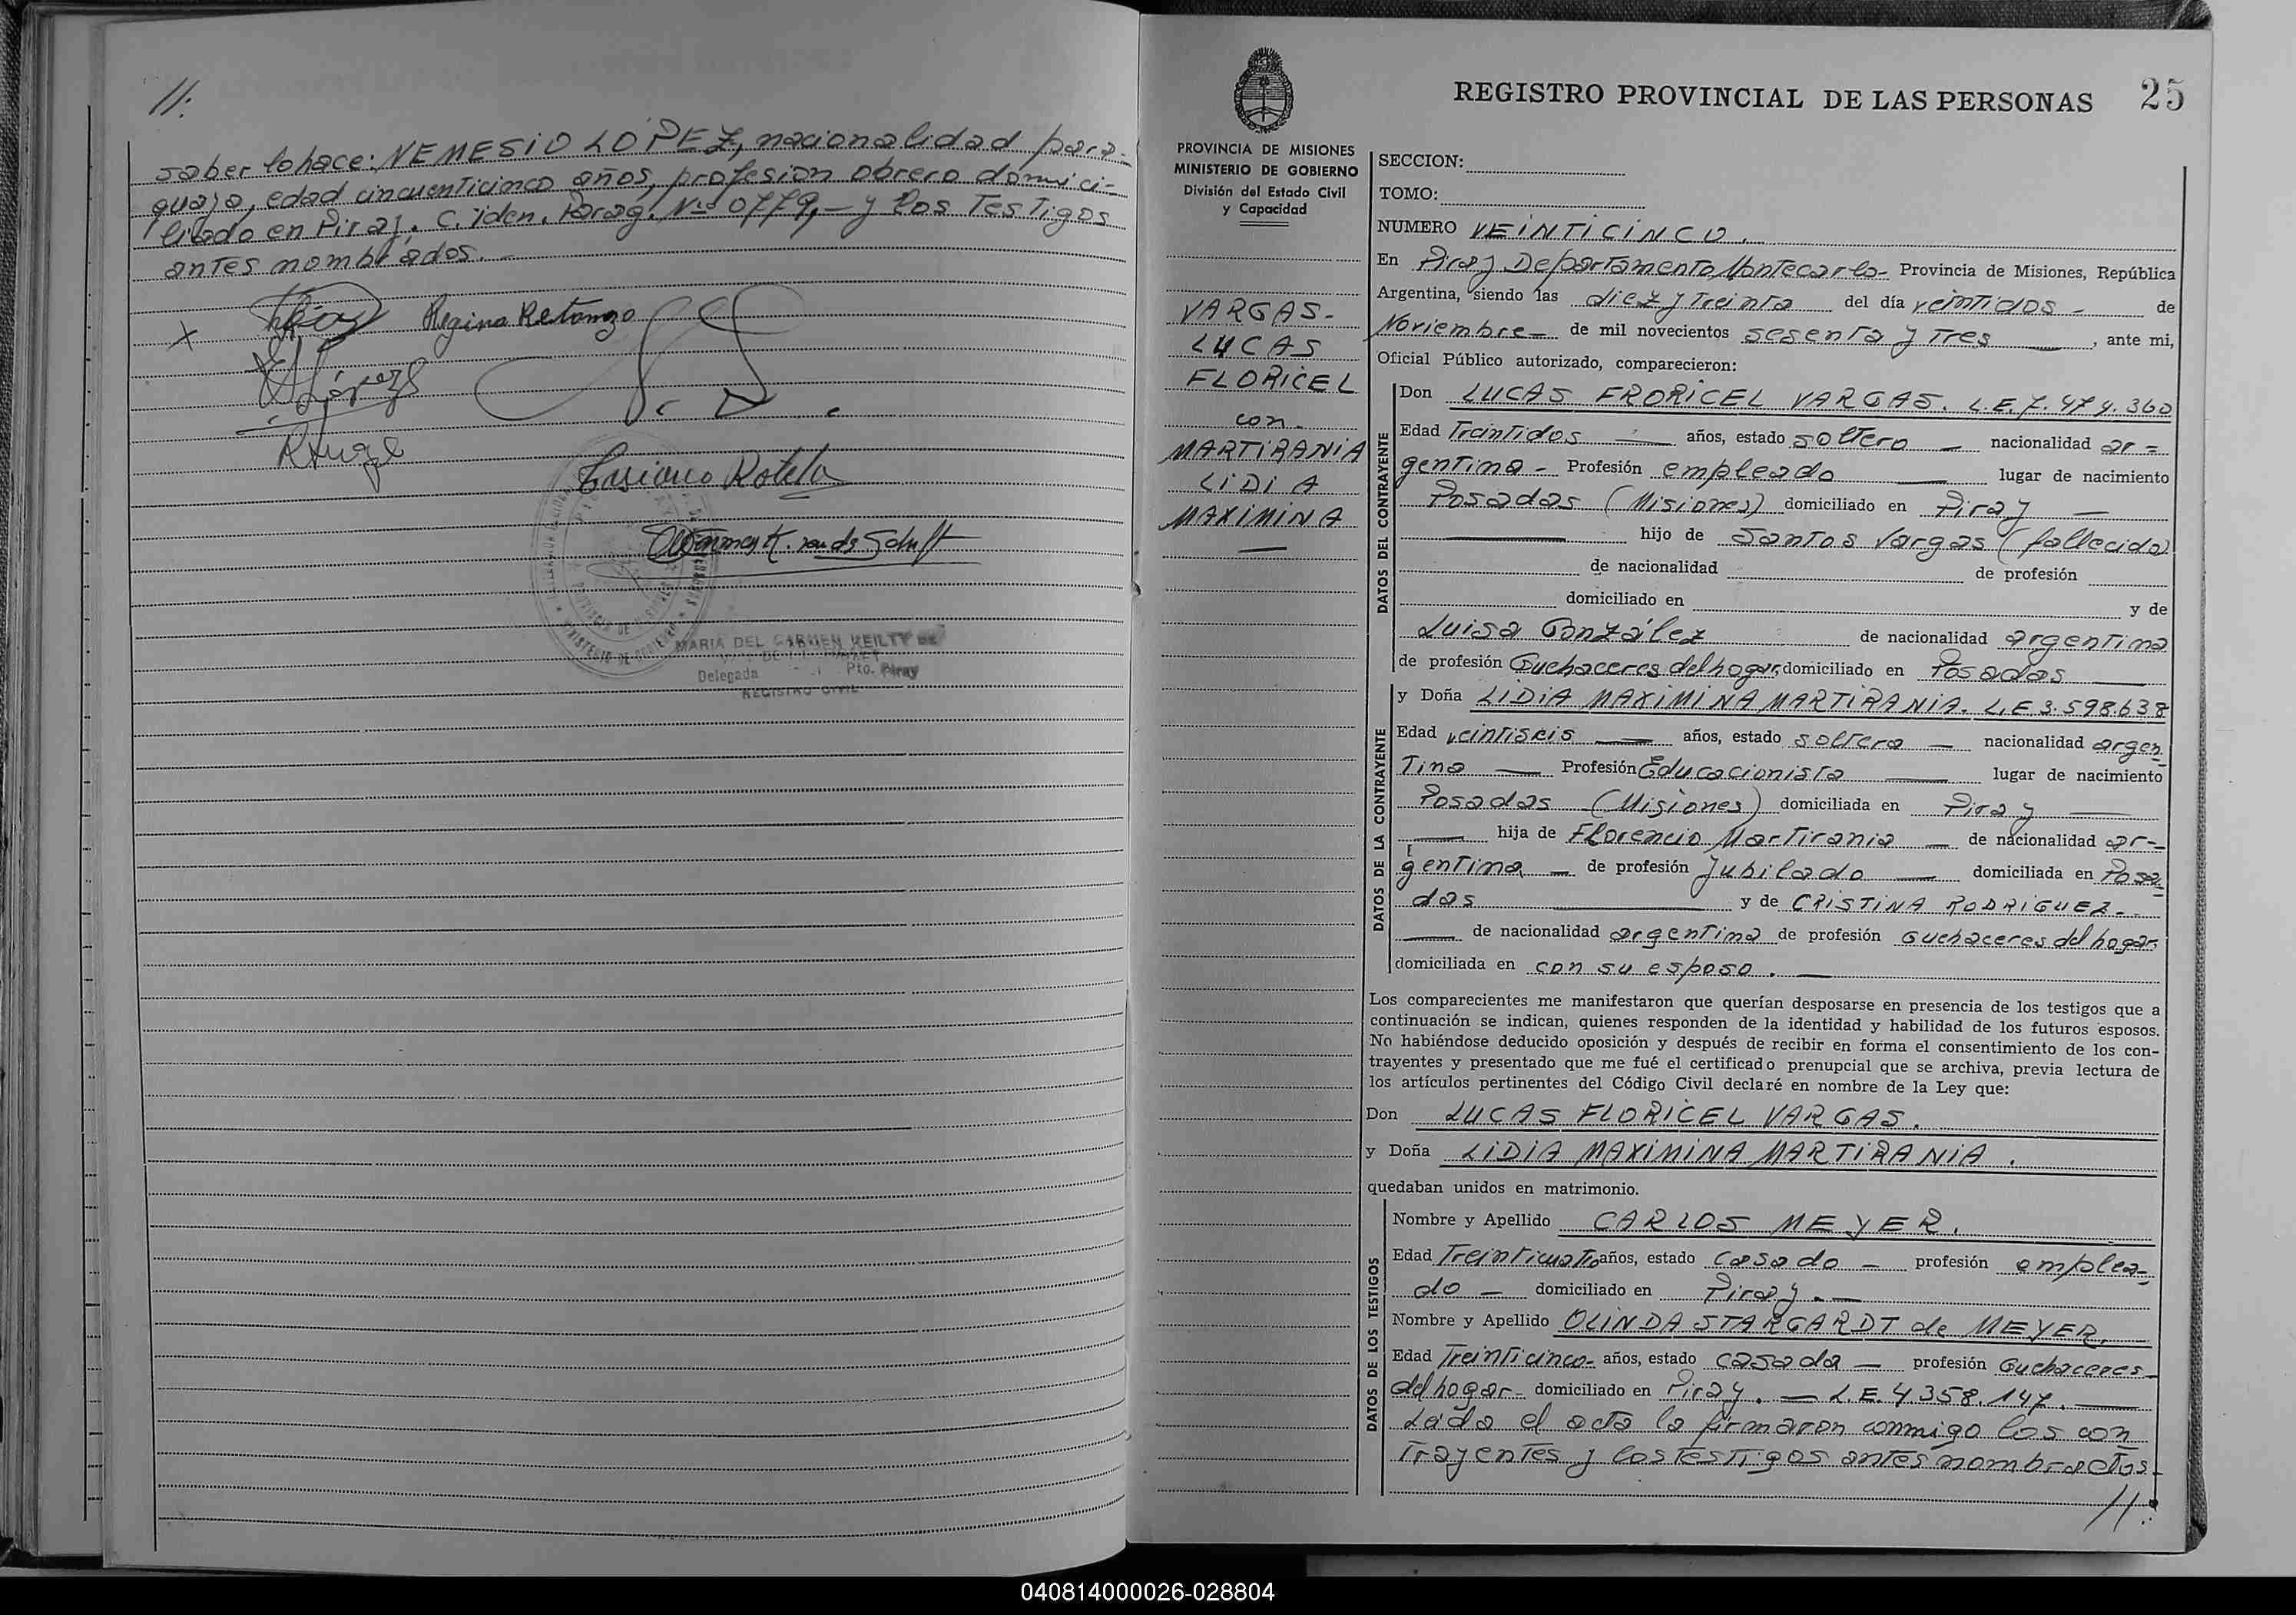 //.
saber lo hace: NEMESIO LOPEZ, nacionalidad para-
guaya, edad cincuenticinco años, profesion obrero domici-
liado en Piray. C. iden. Parag. Nº 0779,- y los Testigos
antes nombrados.-
X Regina Retamozo
López
Kruge
Luciano Rotela
MARIA DEL CARMEN KEILTY DE
Delegada Pto. Piray
REGISTRO CIVIL
REGISTRO PROVINCIAL DE LAS PERSONAS 25
PROVINCIA DE MISIONES
MINISTERIO DE GOBIERNO
División del Estado Civil
y Capacidad
VARGAS-
LUCAS
FLORICEL
con-
MARTIRANIA
LIDIA
MAXIMINA
SECCION:
TOMO:
NUMERO VEINTICINCO.
En Piray Departamento Montecarlo- Provincia de Misiones, República
Argentina, siendo las diez y treinta del día veintidos - de
Noviembre- de mil novecientos sesenta y tres —, ante mi,
Oficial Público autorizado, comparecieron:
DATOS DEL CONTRAYENTE
Don LUCAS FRORICEL VARGAS. L.E. 7.474.360
Edad Treintidos — años, estado soltero — nacionalidad ar-
gentina - Profesión empleado — lugar de nacimiento
Posadas (Misiones) domiciliado en Piray —
— hijo de Santos Vargas (fallecido)
de nacionalidad de profesión
domiciliado en y de
Luisa González de nacionalidad argentina
de profesión Quehaceres del hogar, domiciliado en Posadas —
DATOS DE LA CONTRAYENTE
y Doña LIDIA MAXIMINA MARTIRANIA. L.E 3.598.638
Edad veintiseis — años, estado soltera — nacionalidad argen-
tina — Profesión Educacionista — lugar de nacimiento
Posadas (Misiones) domiciliada en Piray —
— hija de Florencio Martirania — de nacionalidad ar-
gentina — de profesión Jubilado — domiciliada en Posa-
das — y de CRISTINA RODRIGUEZ.-
— de nacionalidad argentina de profesión Quehaceres del hogar
domiciliada en con su esposo. —
Los comparecientes me manifestaron que querían desposarse en presencia de los testigos que a
continuación se indican, quienes responden de la identidad y habilidad de los futuros esposos.
No habiéndose deducido oposición y después de recibir en forma el consentimiento de los con-
trayentes y presentado que me fué el certificado prenupcial que se archiva, previa lectura de
los artículos pertinentes del Código Civil declaré en nombre de la Ley que:
Don LUCAS FLORICEL VARGAS.
y Doña LIDIA MAXIMINA MARTIRANIA.
quedaban unidos en matrimonio.
DATOS DE LOS TESTIGOS
Nombre y Apellido CARLOS MEYER.
Edad Treinticuatro años, estado casado - profesión emplea-
do - domiciliado en Piray.—
Nombre y Apellido OLINDA STARGARDT de MEYER.
Edad Treinticinco- años, estado casada — profesión Quehaceres
del hogar- domiciliado en Piray. — L.E. 4.358.147. —
Leida el acta la firmaron conmigo los con
trayentes y los testigos antes nombrados.-
//.
040814000026-028804